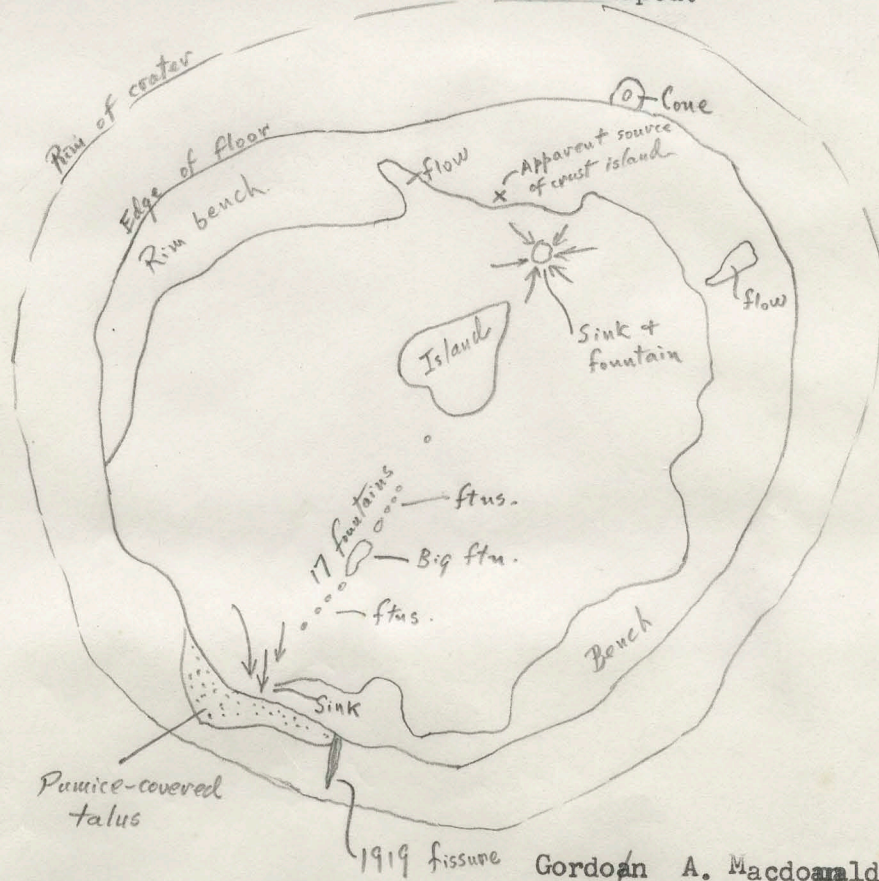 Rim of crater
Edge of floor
Rim bench
flow
Cone
Apparent source
of crust island
flow
Island
Sink +
fountain
17 fountains
ftns.
Big ftn.
ftns.
Bench
Sink
Pumice-covered
talus
1919 fissure
Gordon A. Macdonald